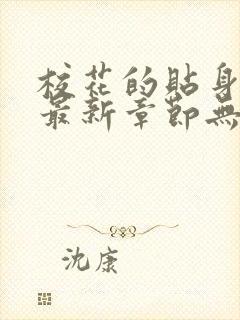 校花的貼身
最新章節無
沈康